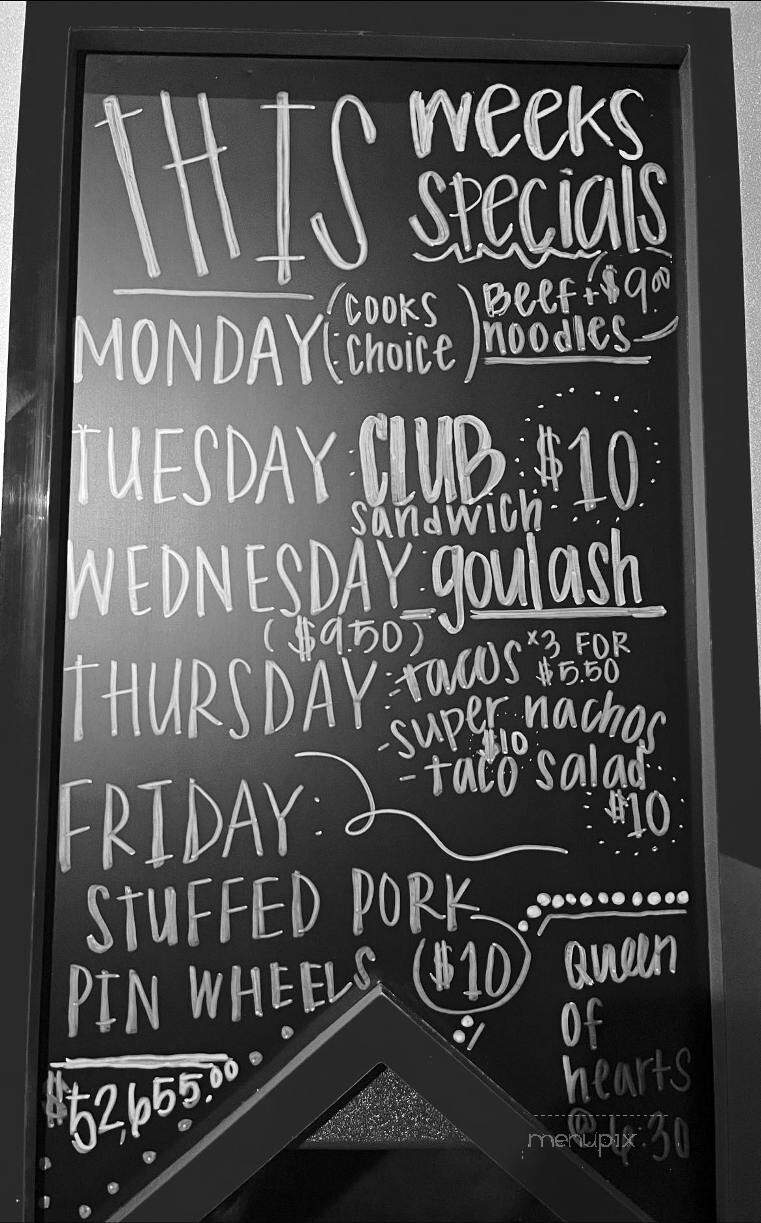 THIS weeks
specials
MONDAY (cooks choice) Beef + noodles $9.00
TUESDAY CLUB sandwich $10
WEDNESDAY: goulash
($9.50)
THURSDAY - tacos x3 FOR $5.50
- super nachos
$10
- taco salad
$10
FRIDAY:
STUFFED PORK
PIN WHEELS ($10)
Queen
of
hearts
@ 6:30
$52,655.00
menupix